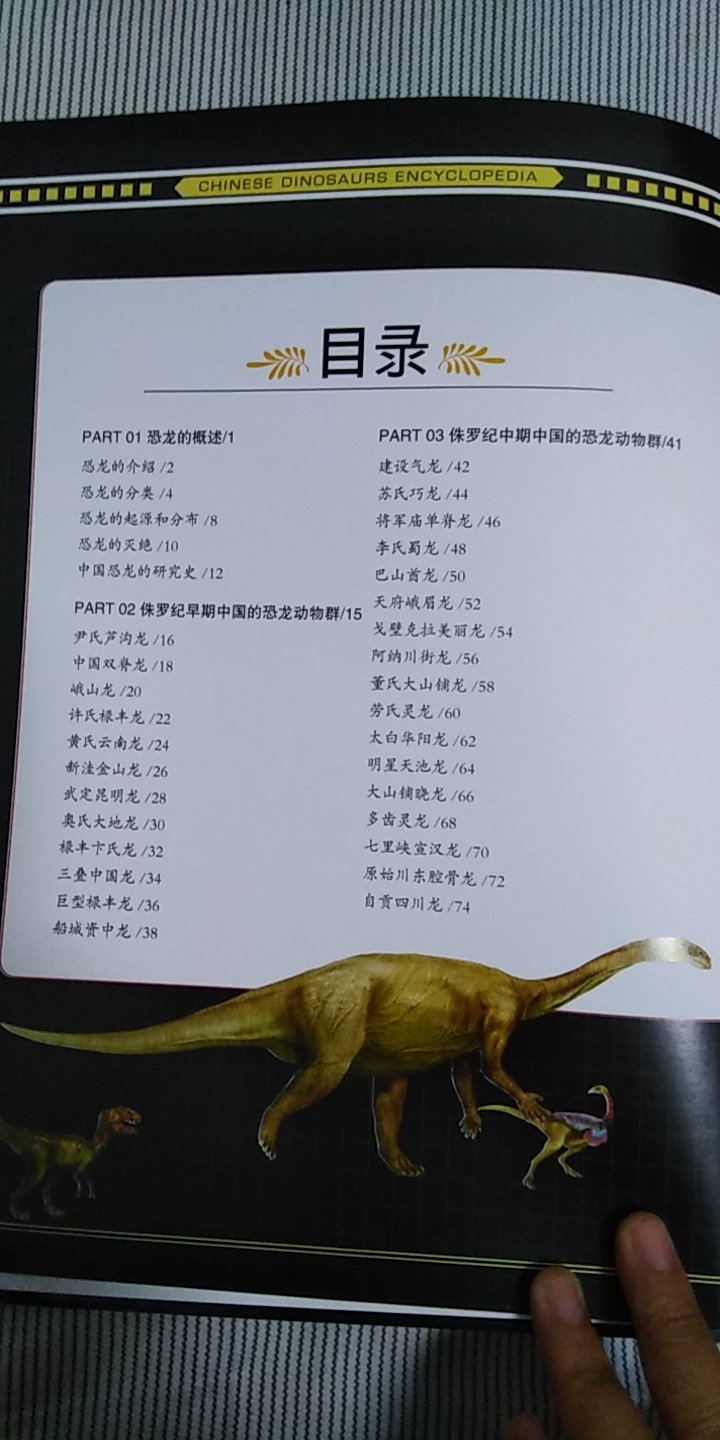 CHINESE DINOSAURS ENCYCLOPEDIA
目录
PART 01 恐龙的概述/1
恐龙的介绍 /2
恐龙的分类 /4
恐龙的起源和分布 /8
恐龙的灭绝 /10
中国恐龙的研究史 /12
PART 02 侏罗纪早期中国的恐龙动物群/15
尹氏芦沟龙 /16
中国双脊龙 /18
峨山龙 /20
许氏禄丰龙 /22
黄氏云南龙 /24
新洼金山龙 /26
武定昆明龙 /28
奥氏大地龙 /30
禄丰卞氏龙 /32
三叠中国龙 /34
巨型禄丰龙 /36
船城资中龙 /38
PART 03 侏罗纪中期中国的恐龙动物群/41
建设气龙 /42
苏氏巧龙 /44
将军庙单脊龙 /46
李氏蜀龙 /48
巴山酋龙 /50
天府峨眉龙 /52
戈壁克拉美丽龙 /54
阿纳川街龙 /56
董氏大山铺龙 /58
劳氏灵龙 /60
太白华阳龙 /62
明星天池龙 /64
大山铺晓龙 /66
多齿灵龙 /68
七里峡宣汉龙 /70
原始川东腔骨龙 /72
自贡四川龙 /74